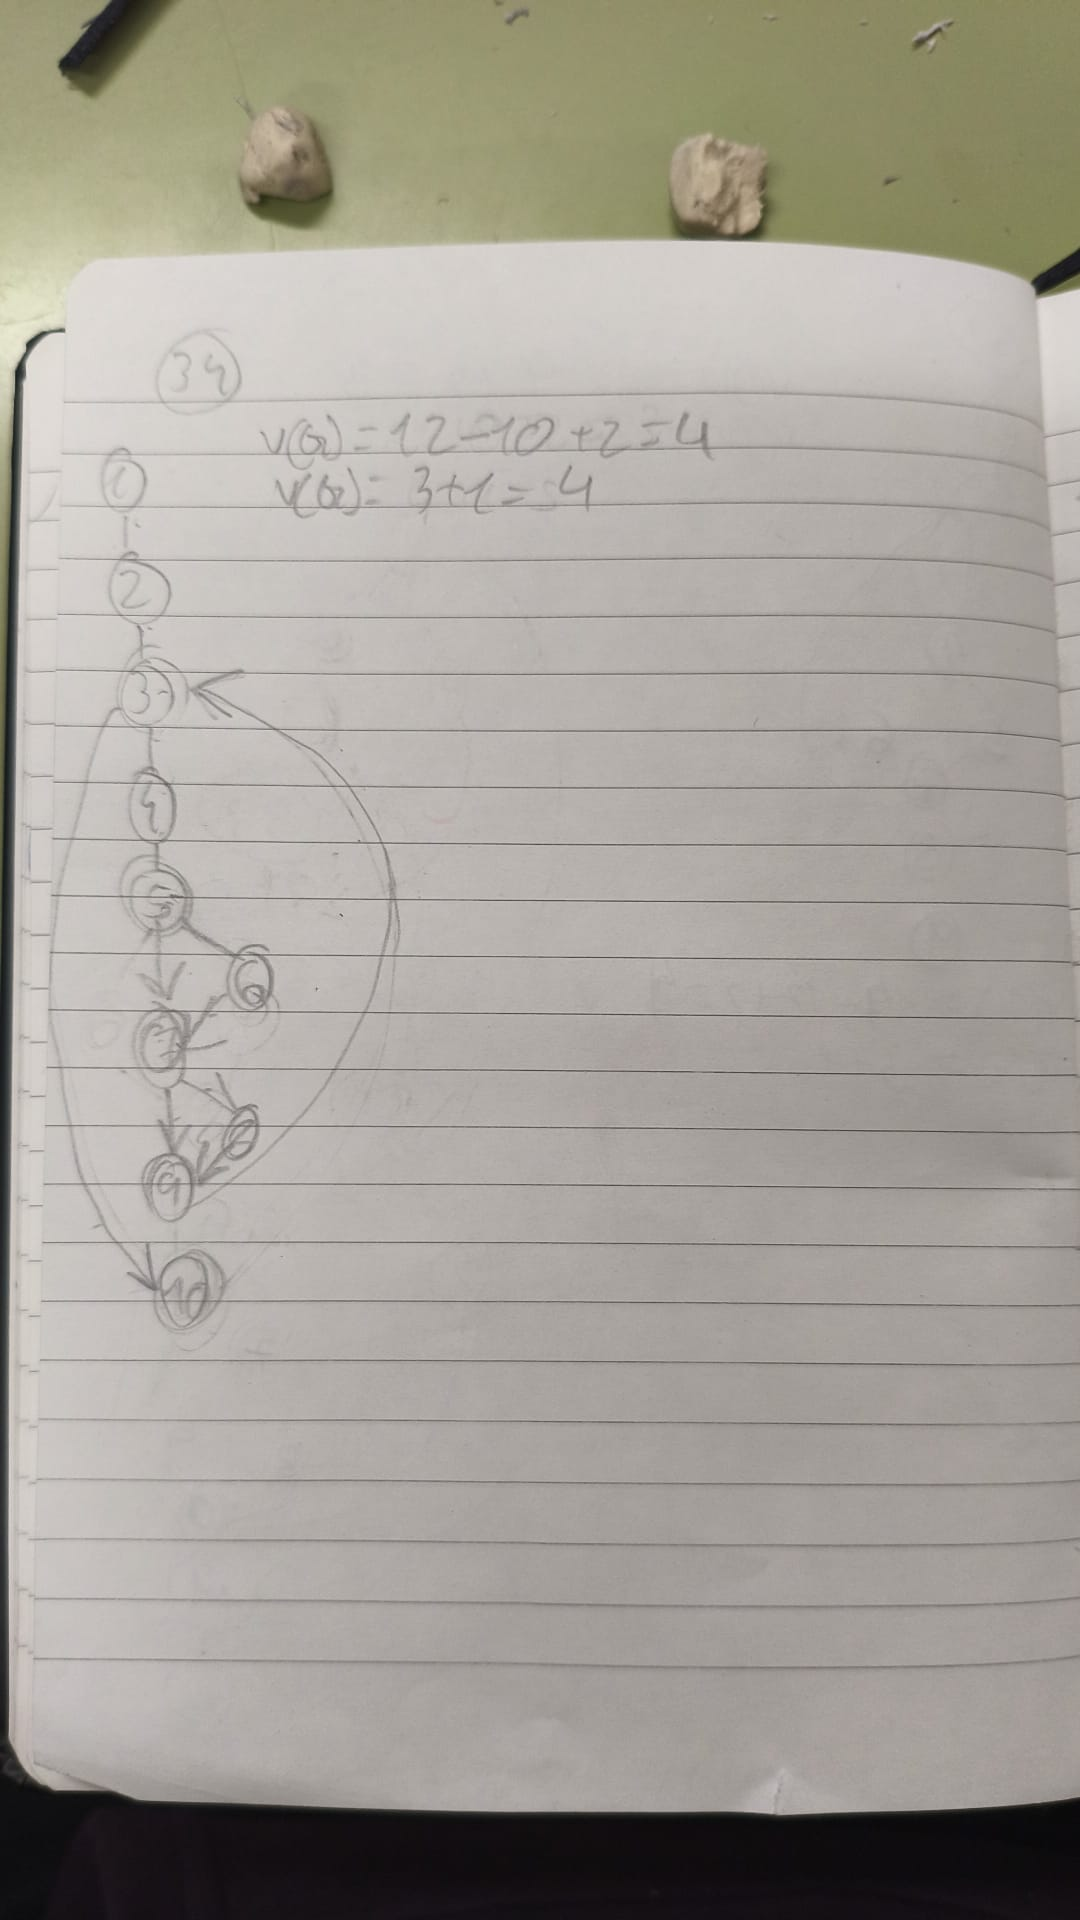 34
V(G) = 12-10+2=4
V(G) = 3+1 = 4
1
2
3
4
5
6
7
8
9
10